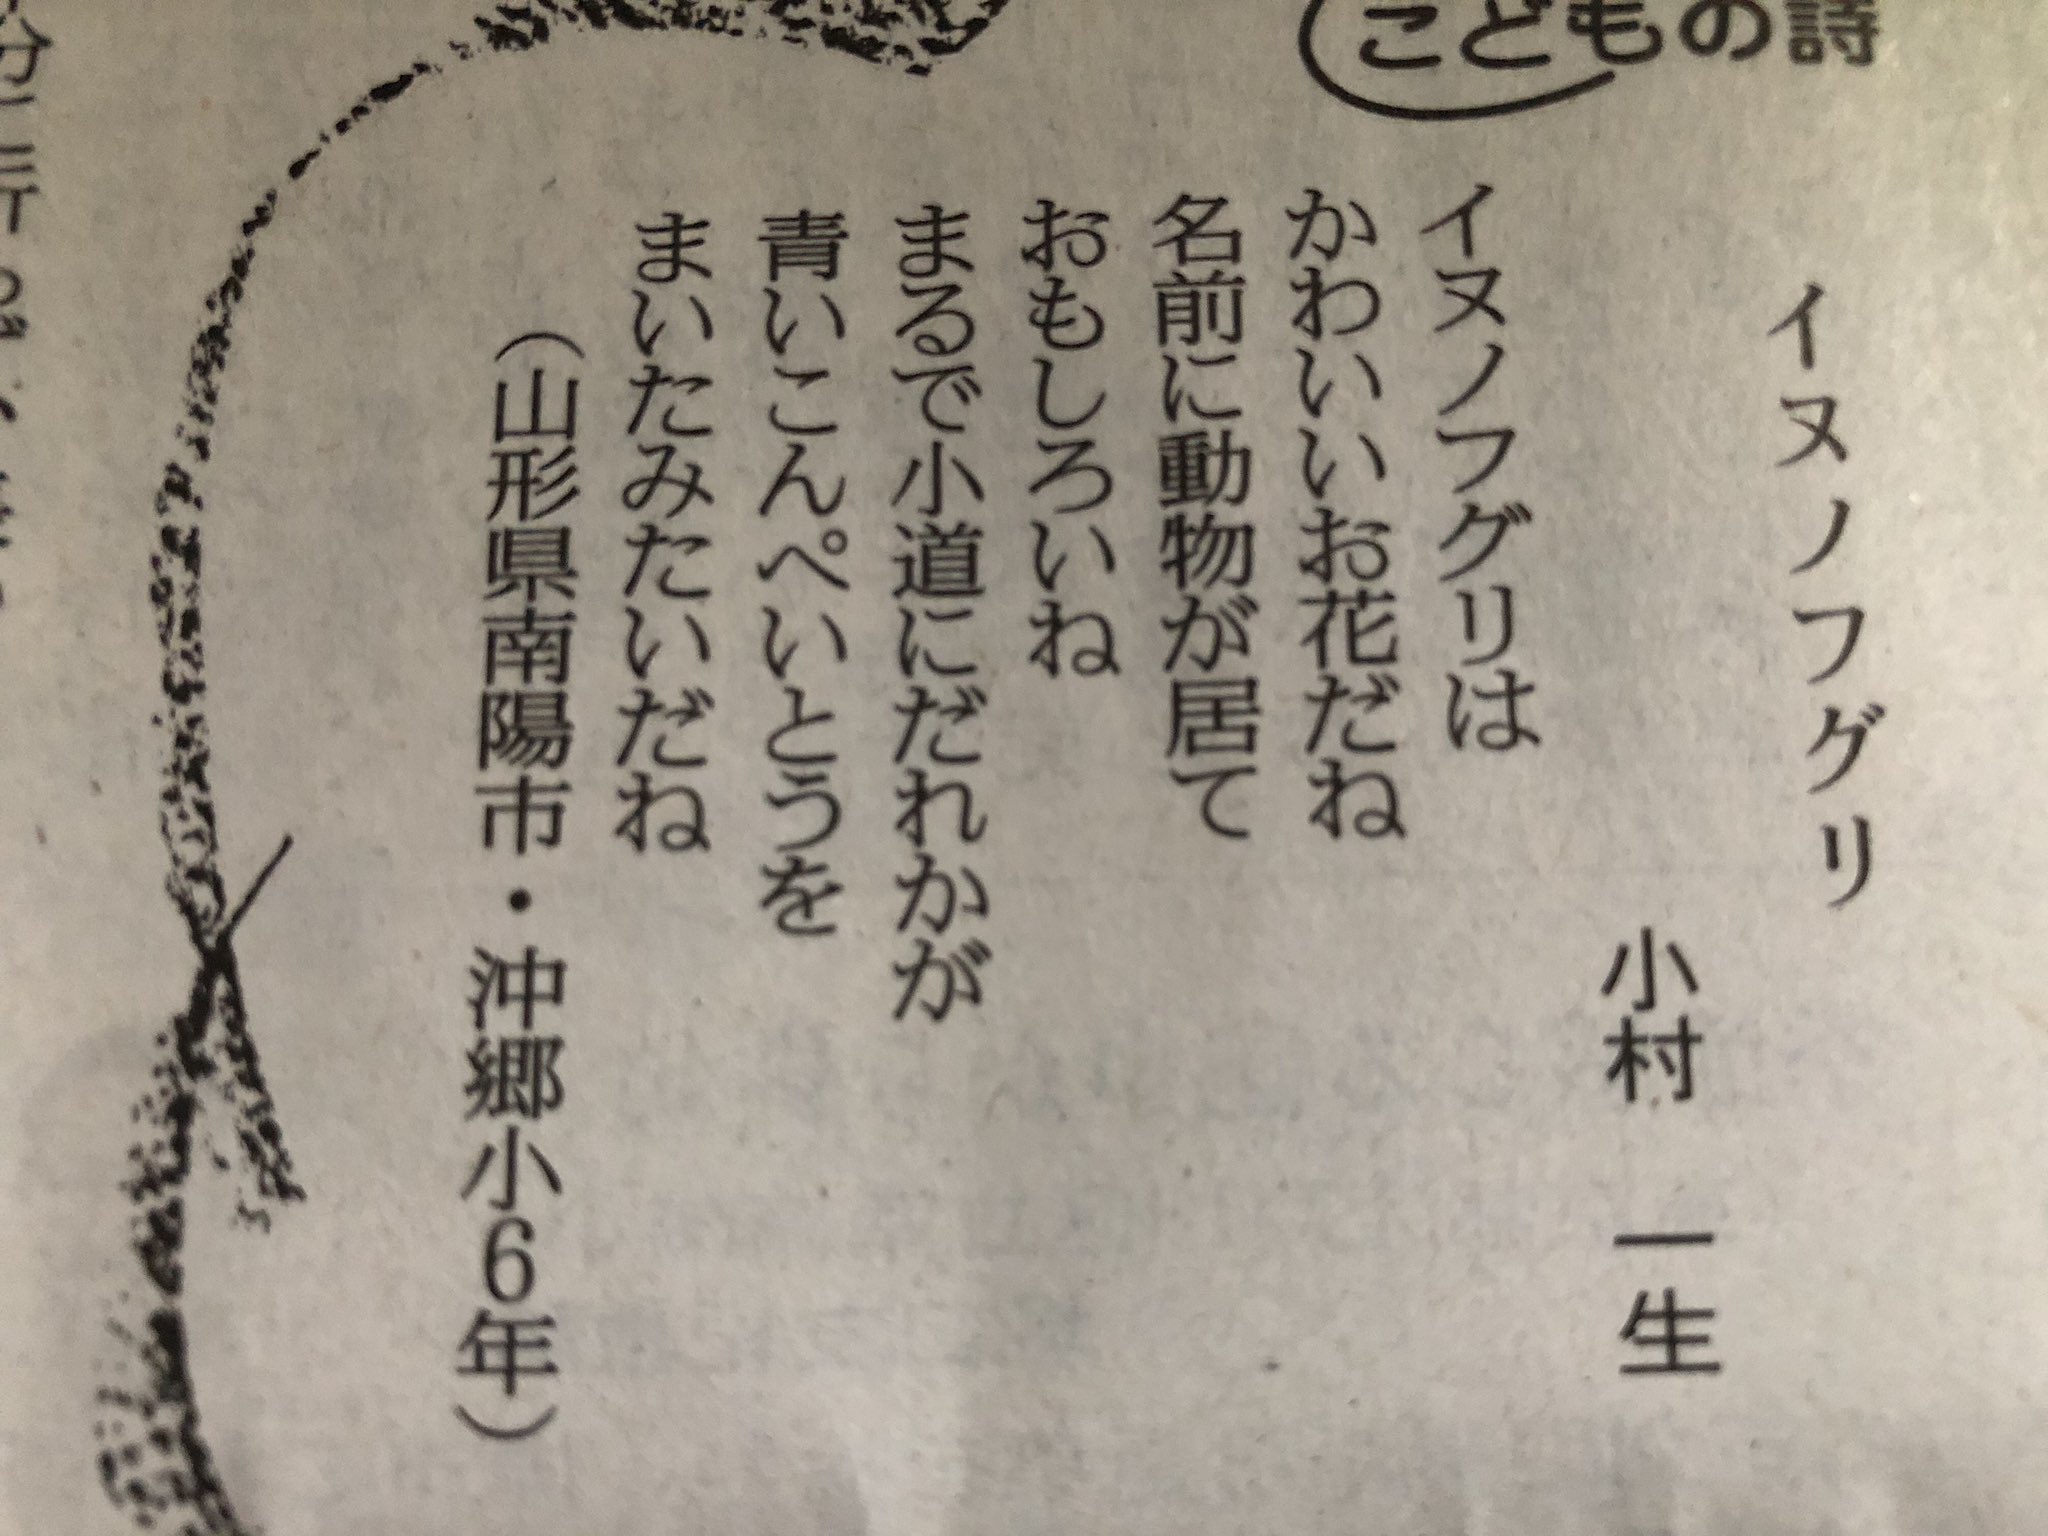 こどもの詩
イヌノフグリ
小村 一生
イヌノフグリは
かわいいお花だね
名前に動物が居て
おもしろいね
まるで小道にだれかが
青いこんぺいとうを
まいたみたいだね
（山形県南陽市・沖郷小6年）